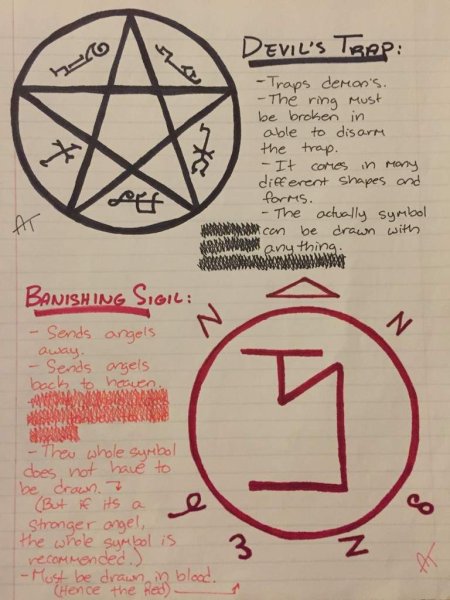 DEVIL'S TRAP:
- Traps demon's.
- The ring must
be broken in
able to disarm
the trap.
- It comes in many
different shapes and
forms.
- The actually symbol
can be drawn with
anything.
AT
BANISHING SIGIL:
- Sends angels
away.
- Sends angels
back to heaven.
- They whole symbol
does not have to
be drawn.
(But if its a
stronger angel,
the whole symbol is
recommended.)
- Must be drawn in blood.
(Hence the Red)
N N
e 3 N 8
AT